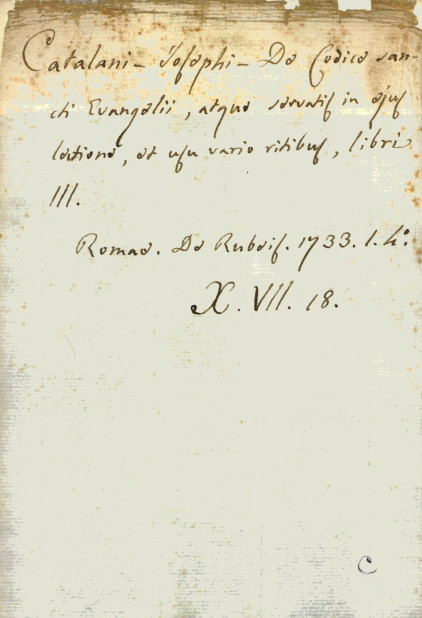 Catalani - Josephi - De Codice san-
cti Evangelii, atque servatis in ejus
lectione, et usu vario ritibus, libri
III.
Romae. De Rubeis. 1733. 1. 4°.
X. VII. 18.
C